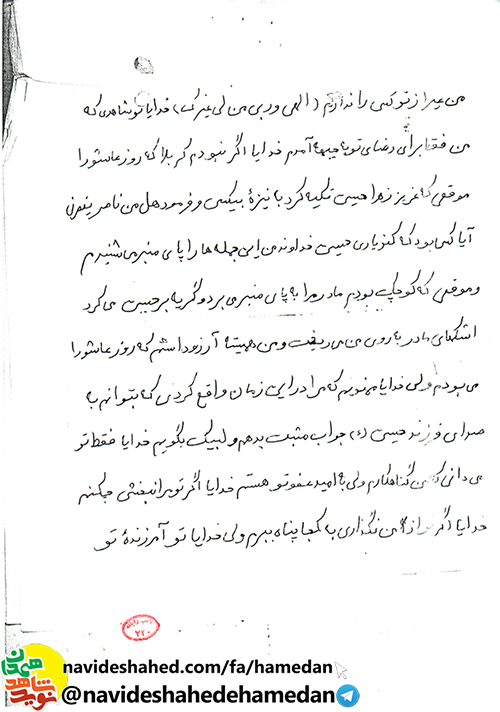 من غیر از تو کسی را ندارم (الهی و ربی من لی غیرک) خدایا تو شاهدی که
من فقط برای رضای تو به جبهه آمدم خدایا اگر نبودم کربلا که روز عاشورا
موقعی که عزیز زهرا حسین تکیه کرد با نیزهٔ بیکسی و فرمود هل من ناصر ینصرنی
آیا کسی بود که کند یاری حسین خداوند من این جمله ها را پای منبر می شنیدم
و موقعی که کوچک بودم مادر مرا به پای منبر می برد و گریه بر حسین می کرد
اشکهای مادر به روی من می ریخت و من همیشه آرزو داشتم که روز عاشورا
می بودم ولی خدایا ممنونم که مرا در این زمان واقع کردی که بتوانم به
صدای فرزند حسین جواب مثبت بدهم و لبیک بگویم خدایا فقط تو
می دانی که من گناهکارم ولی به امید عفو تو هستم خدایا اگر تو مرا نبخشی چکنم
خدایا اگر تو از من نگذری به کجا پناه ببرم ولی خدایا تو آمرزندهٔ تو
۲۲۰
نوید شاهد همدان
navideshahed.com/fa/hamedan
@navideshahedehamedan